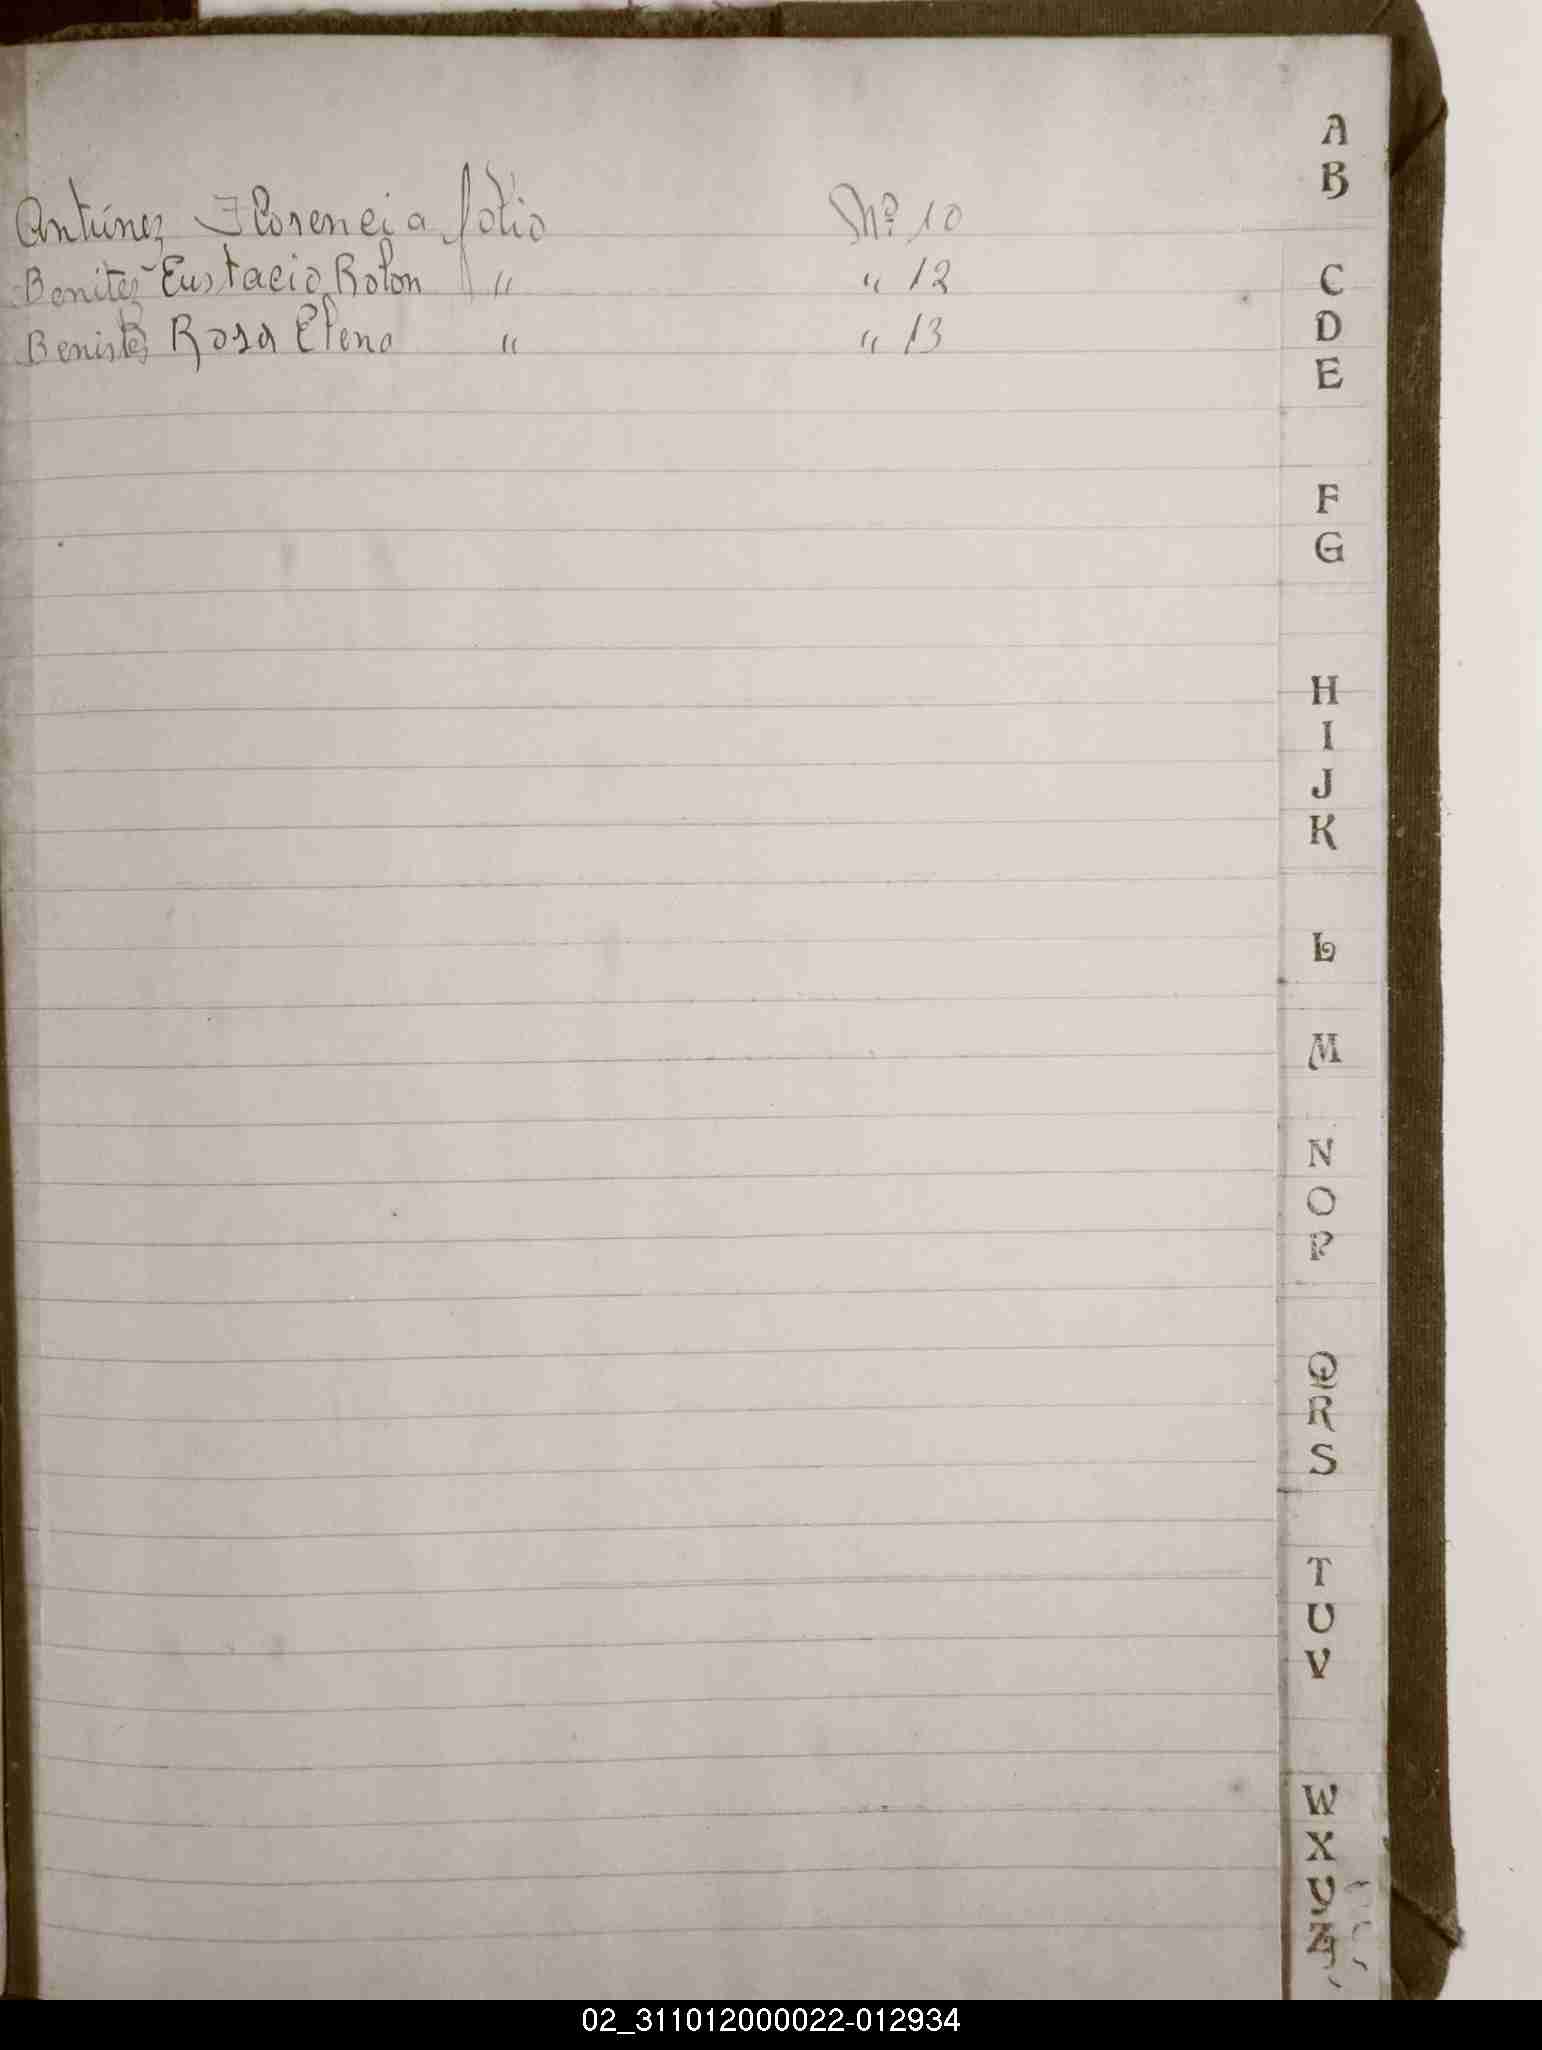 Antúnez Florencia folio Nº 10
Benitez Eustacio Rolon " " 12
Benistez Rosa Elena " " 13
A
B
C
D
E
F
G
H
I
J
K
L
M
N
O
P
Q
R
S
T
U
V
W
X
Y
Z
02_311012000022-012934